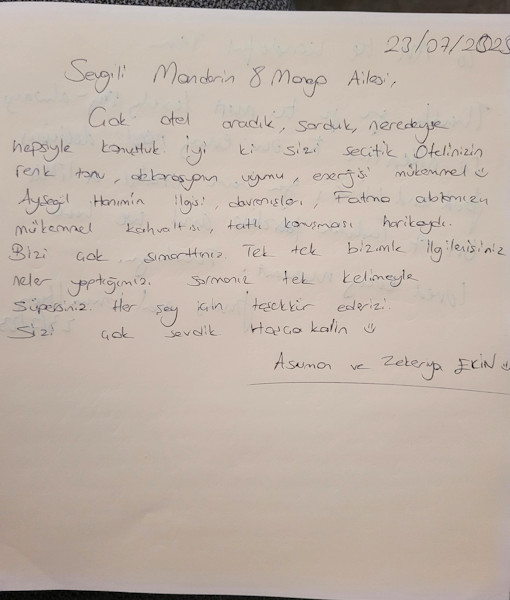 23/07/2025
Sevgili Mandarin & Mango Ailesi,
Çok otel aradık, sorduk, neredeyse
hepsiyle konuştuk iyi ki sizi seçtik. Otelinizin
renk tonu, dekorasyon uyumu, enerjisi mükemmel
Ayşegül Hanımın ilgisi, davranışları, Fatma ablamızın
mükemmel kahvaltısı, tatlı konuşması harikaydı.
Bizi çok şımarttınız. Tek tek bizimle ilgilenişiniz
neler yaptığımız sormanız tek kelimeyle
süpersiniz. Her şey için teşekkür ederiz.
Sizi çok sevdik Hoşça kalın
Asuman ve Zekerya EKİN